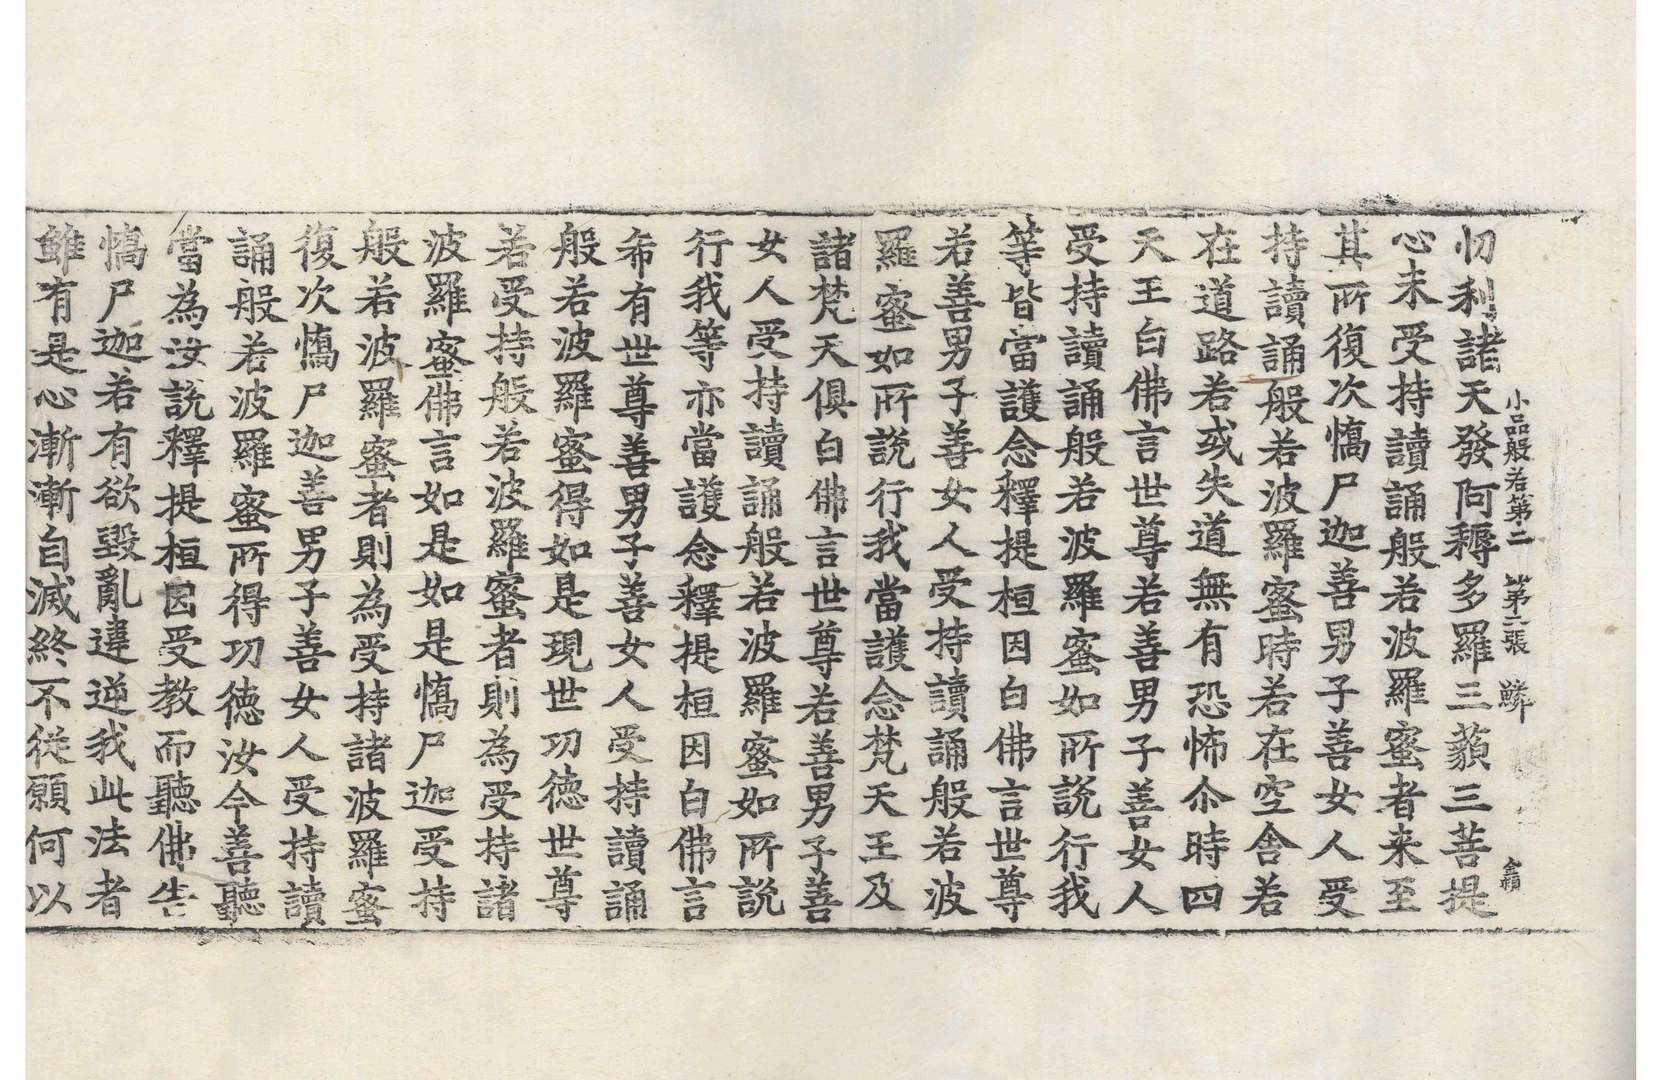 小品般若第二 第二張 鱗
忉利諸天發阿耨多羅三藐三菩提
心未受持讀誦般若波羅蜜者来至
其所復次憍尸迦善男子善女人受
持讀誦般若波羅蜜時若在空舍若
在道路若或失道無有恐怖尒時四
天王白佛言世尊若善男子善女人
受持讀誦般若波羅蜜如所說行我
等皆當護念釋提桓因白佛言世尊
若善男子善女人受持讀誦般若波
羅蜜如所說行我當護念梵天王及
諸梵天俱白佛言世尊若善男子善
女人受持讀誦般若波羅蜜如所說
行我等亦當護念釋提桓因白佛言
希有世尊善男子善女人受持讀誦
般若波羅蜜得如是現世功德世尊
若受持般若波羅蜜者則為受持諸
波羅蜜佛言如是如是憍尸迦受持
般若波羅蜜者則為受持諸波羅蜜
復次憍尸迦善男子善女人受持讀
誦般若波羅蜜所得功德汝今善聽
當為汝說釋提桓因受教而聽佛告
憍尸迦若有欲毀亂違逆我此法者
雖有是心漸漸自滅終不從願何以